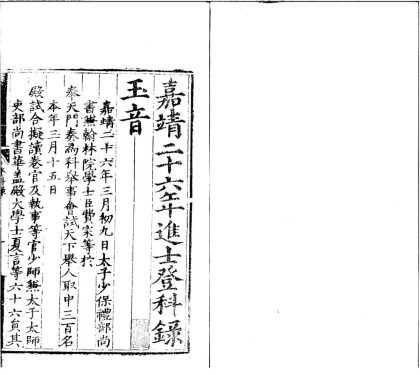 嘉靖二十六年進士登科錄
玉音
嘉靖二十六年三月初九日太子少保禮部尚
書兼翰林院學士臣費寀等於
奉天門奏為科舉事會試天下舉人取中三百名
本年三月十五日
殿試合擬讀卷官及執事等官少師兼太子太師
吏部尚書華蓋殿大學士夏言等六十六員其